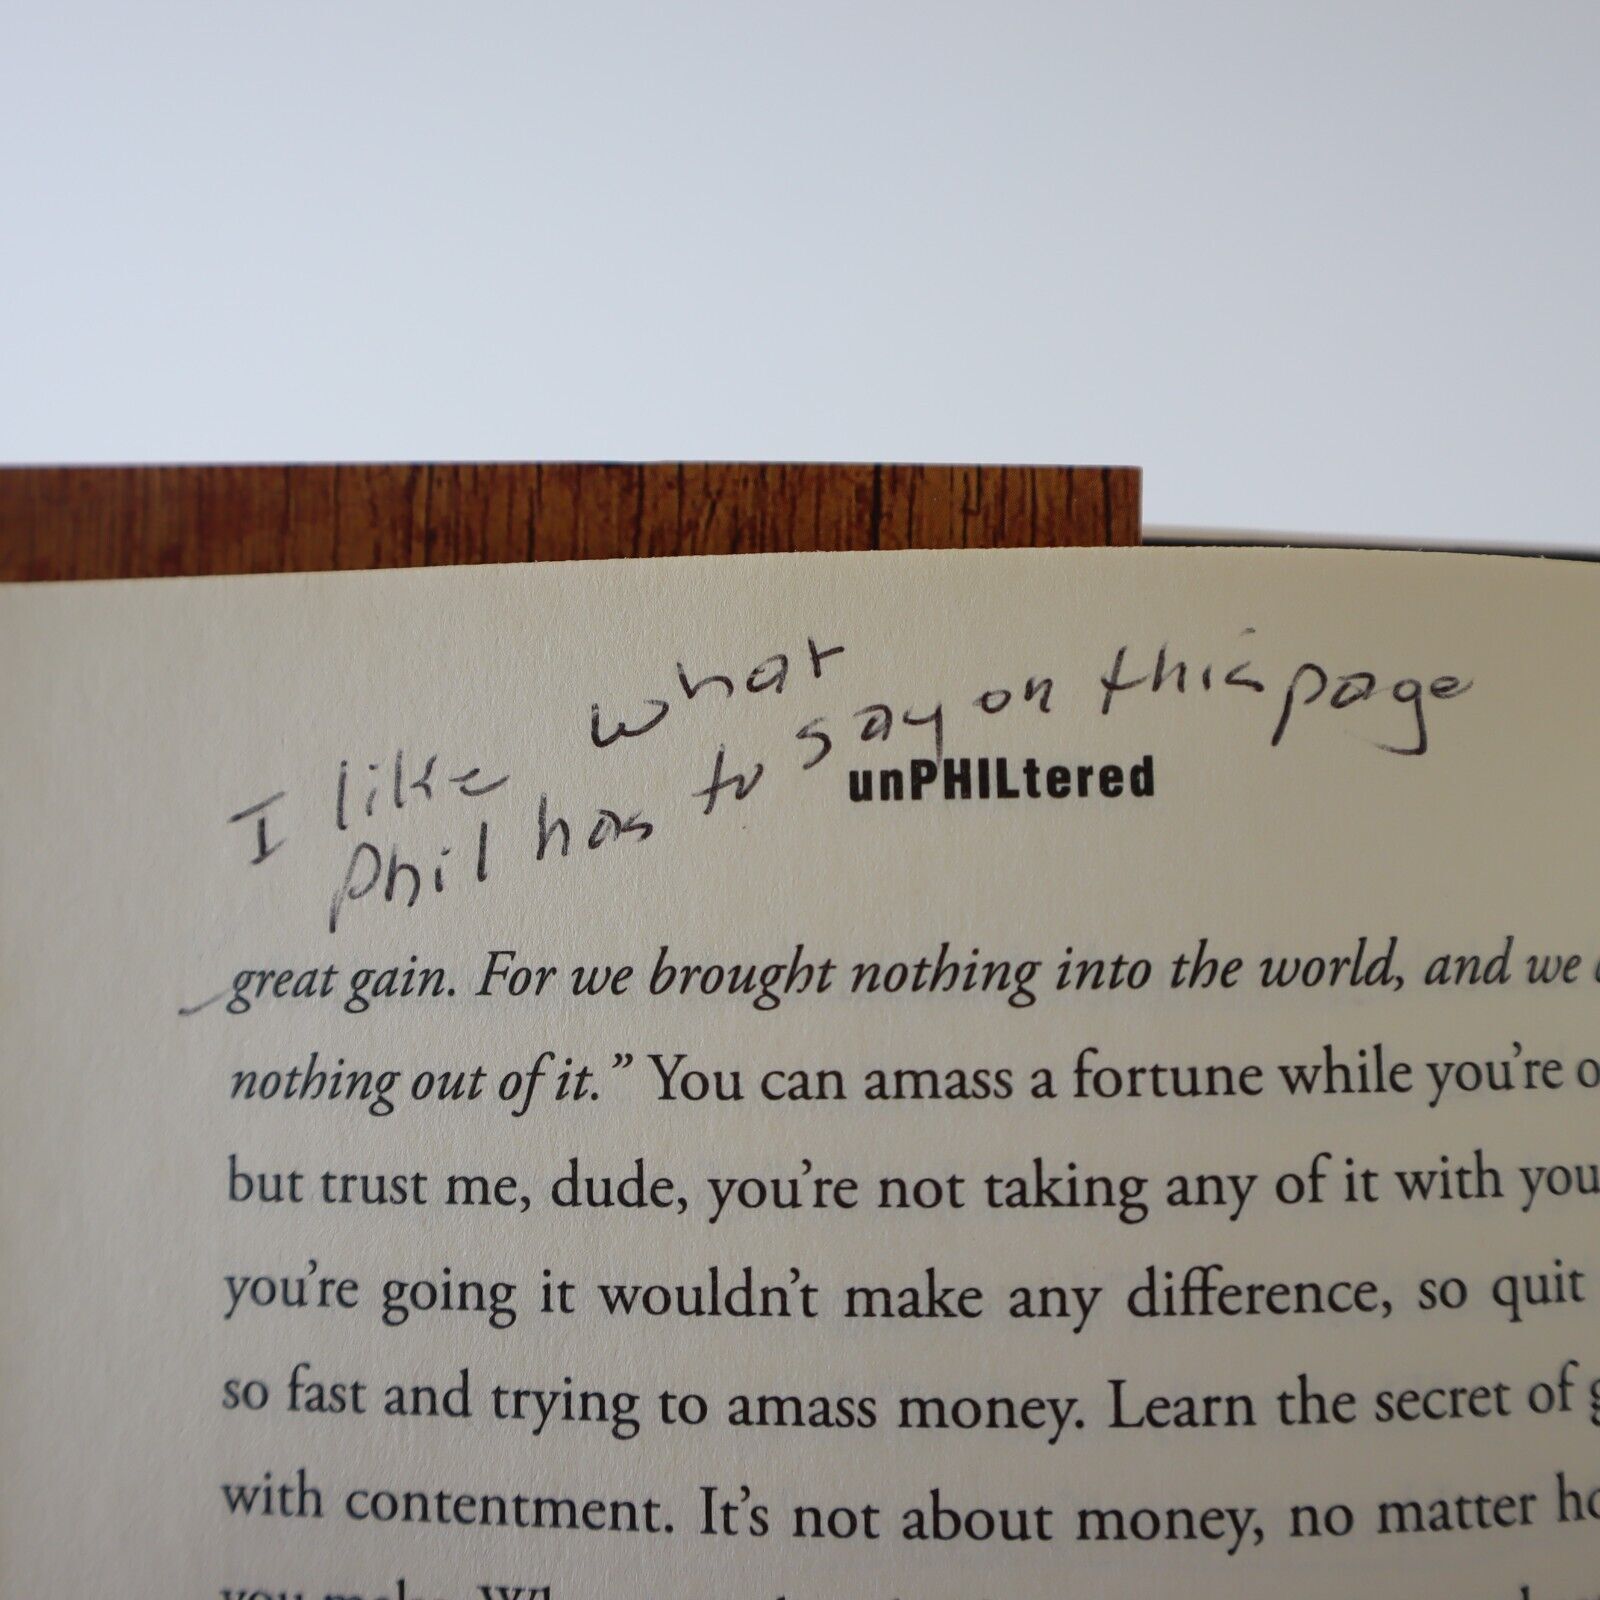 I like what
Phil has to say on this page
unPHILtered
great gain. For we brought nothing into the world, and we
nothing out of it.” You can amass a fortune while you’re
but trust me, dude, you’re not taking any of it with you
you’re going it wouldn’t make any difference, so quit
so fast and trying to amass money. Learn the secret of
with contentment. It’s not about money, no matter
you make.